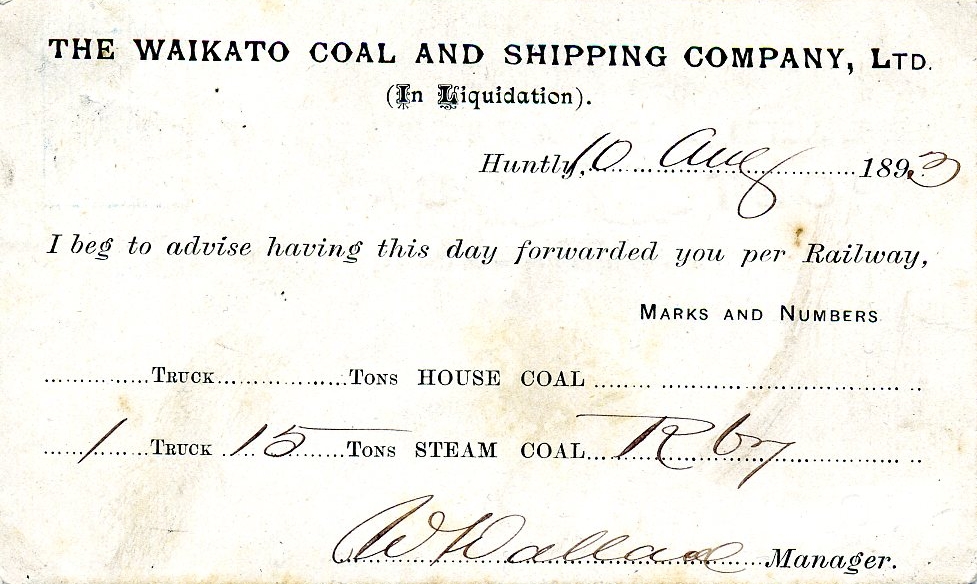 THE WAIKATO COAL AND SHIPPING COMPANY, LTD.
(In Liquidation).
Huntly, 10 Aug 1893
I beg to advise having this day forwarded you per Railway,
MARKS AND NUMBERS
TRUCK TONS HOUSE COAL
1 TRUCK 15 TONS STEAM COAL R
W Wallace Manager.